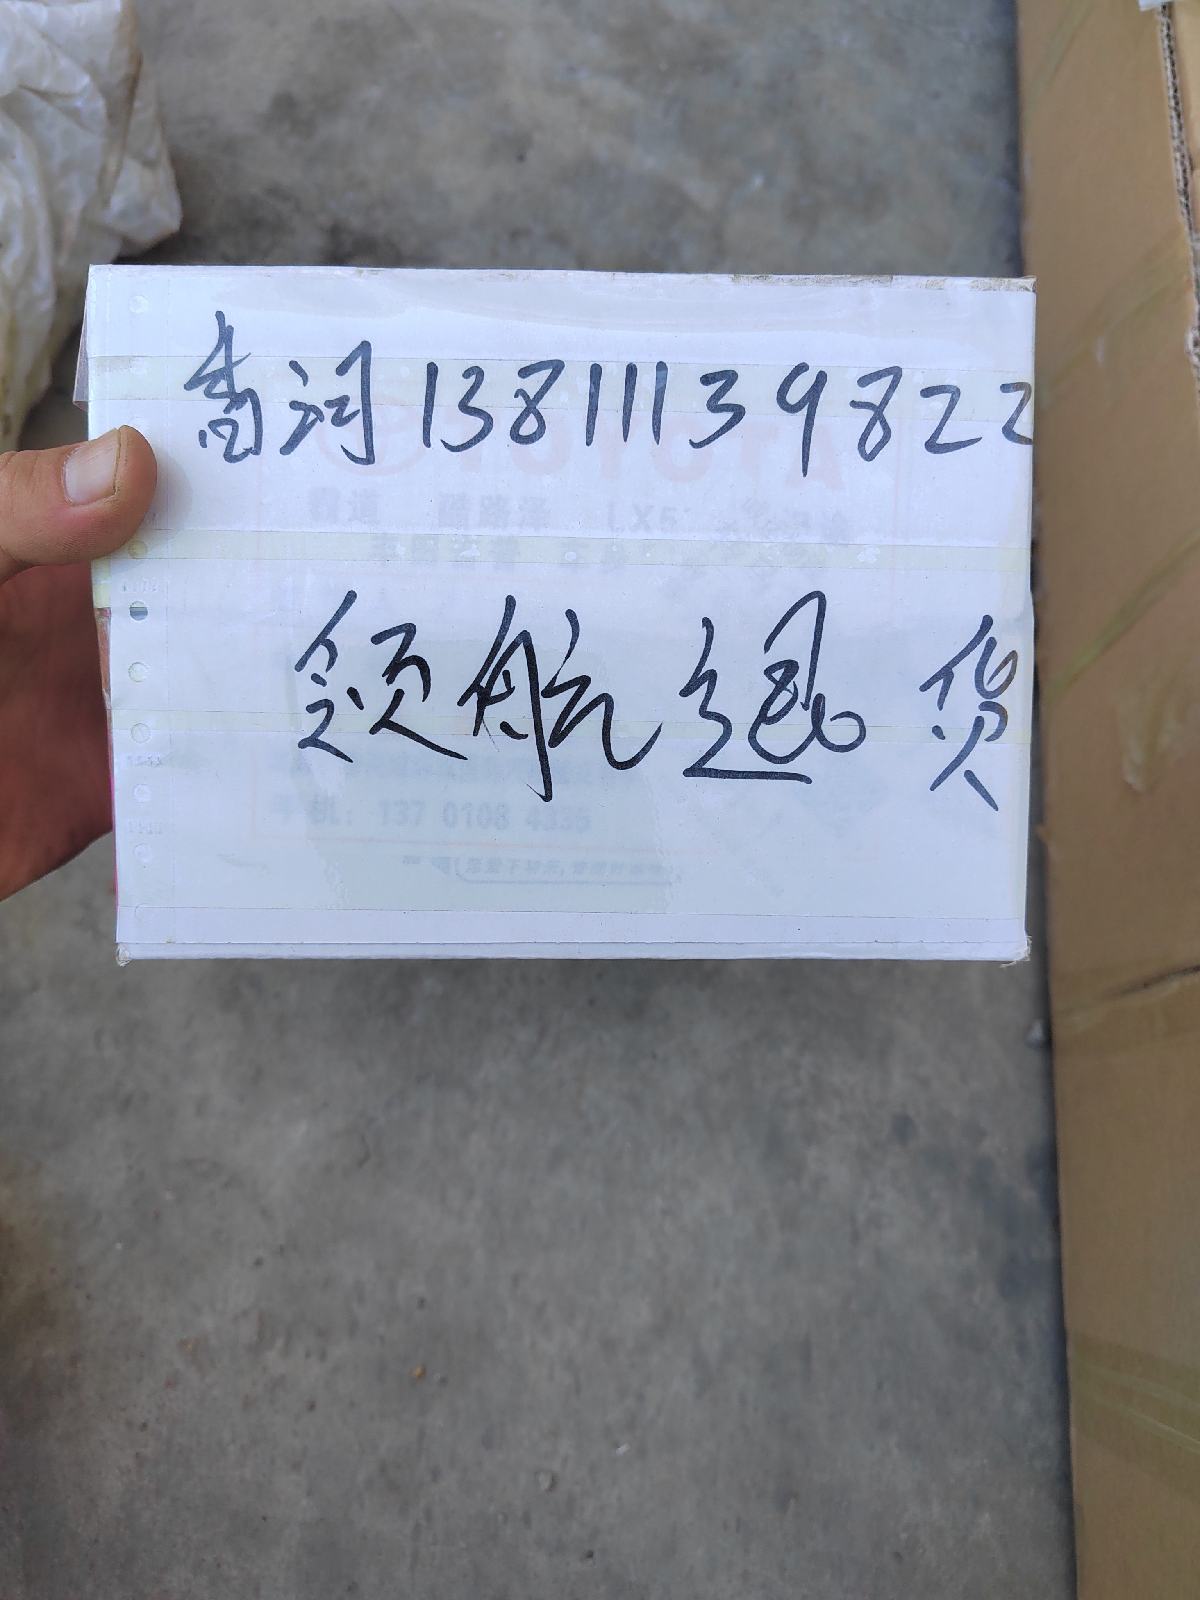 香河 13811139822
领航退货
TOYOTA
霸道 酷路泽 LX5
机: 137 0108 4335